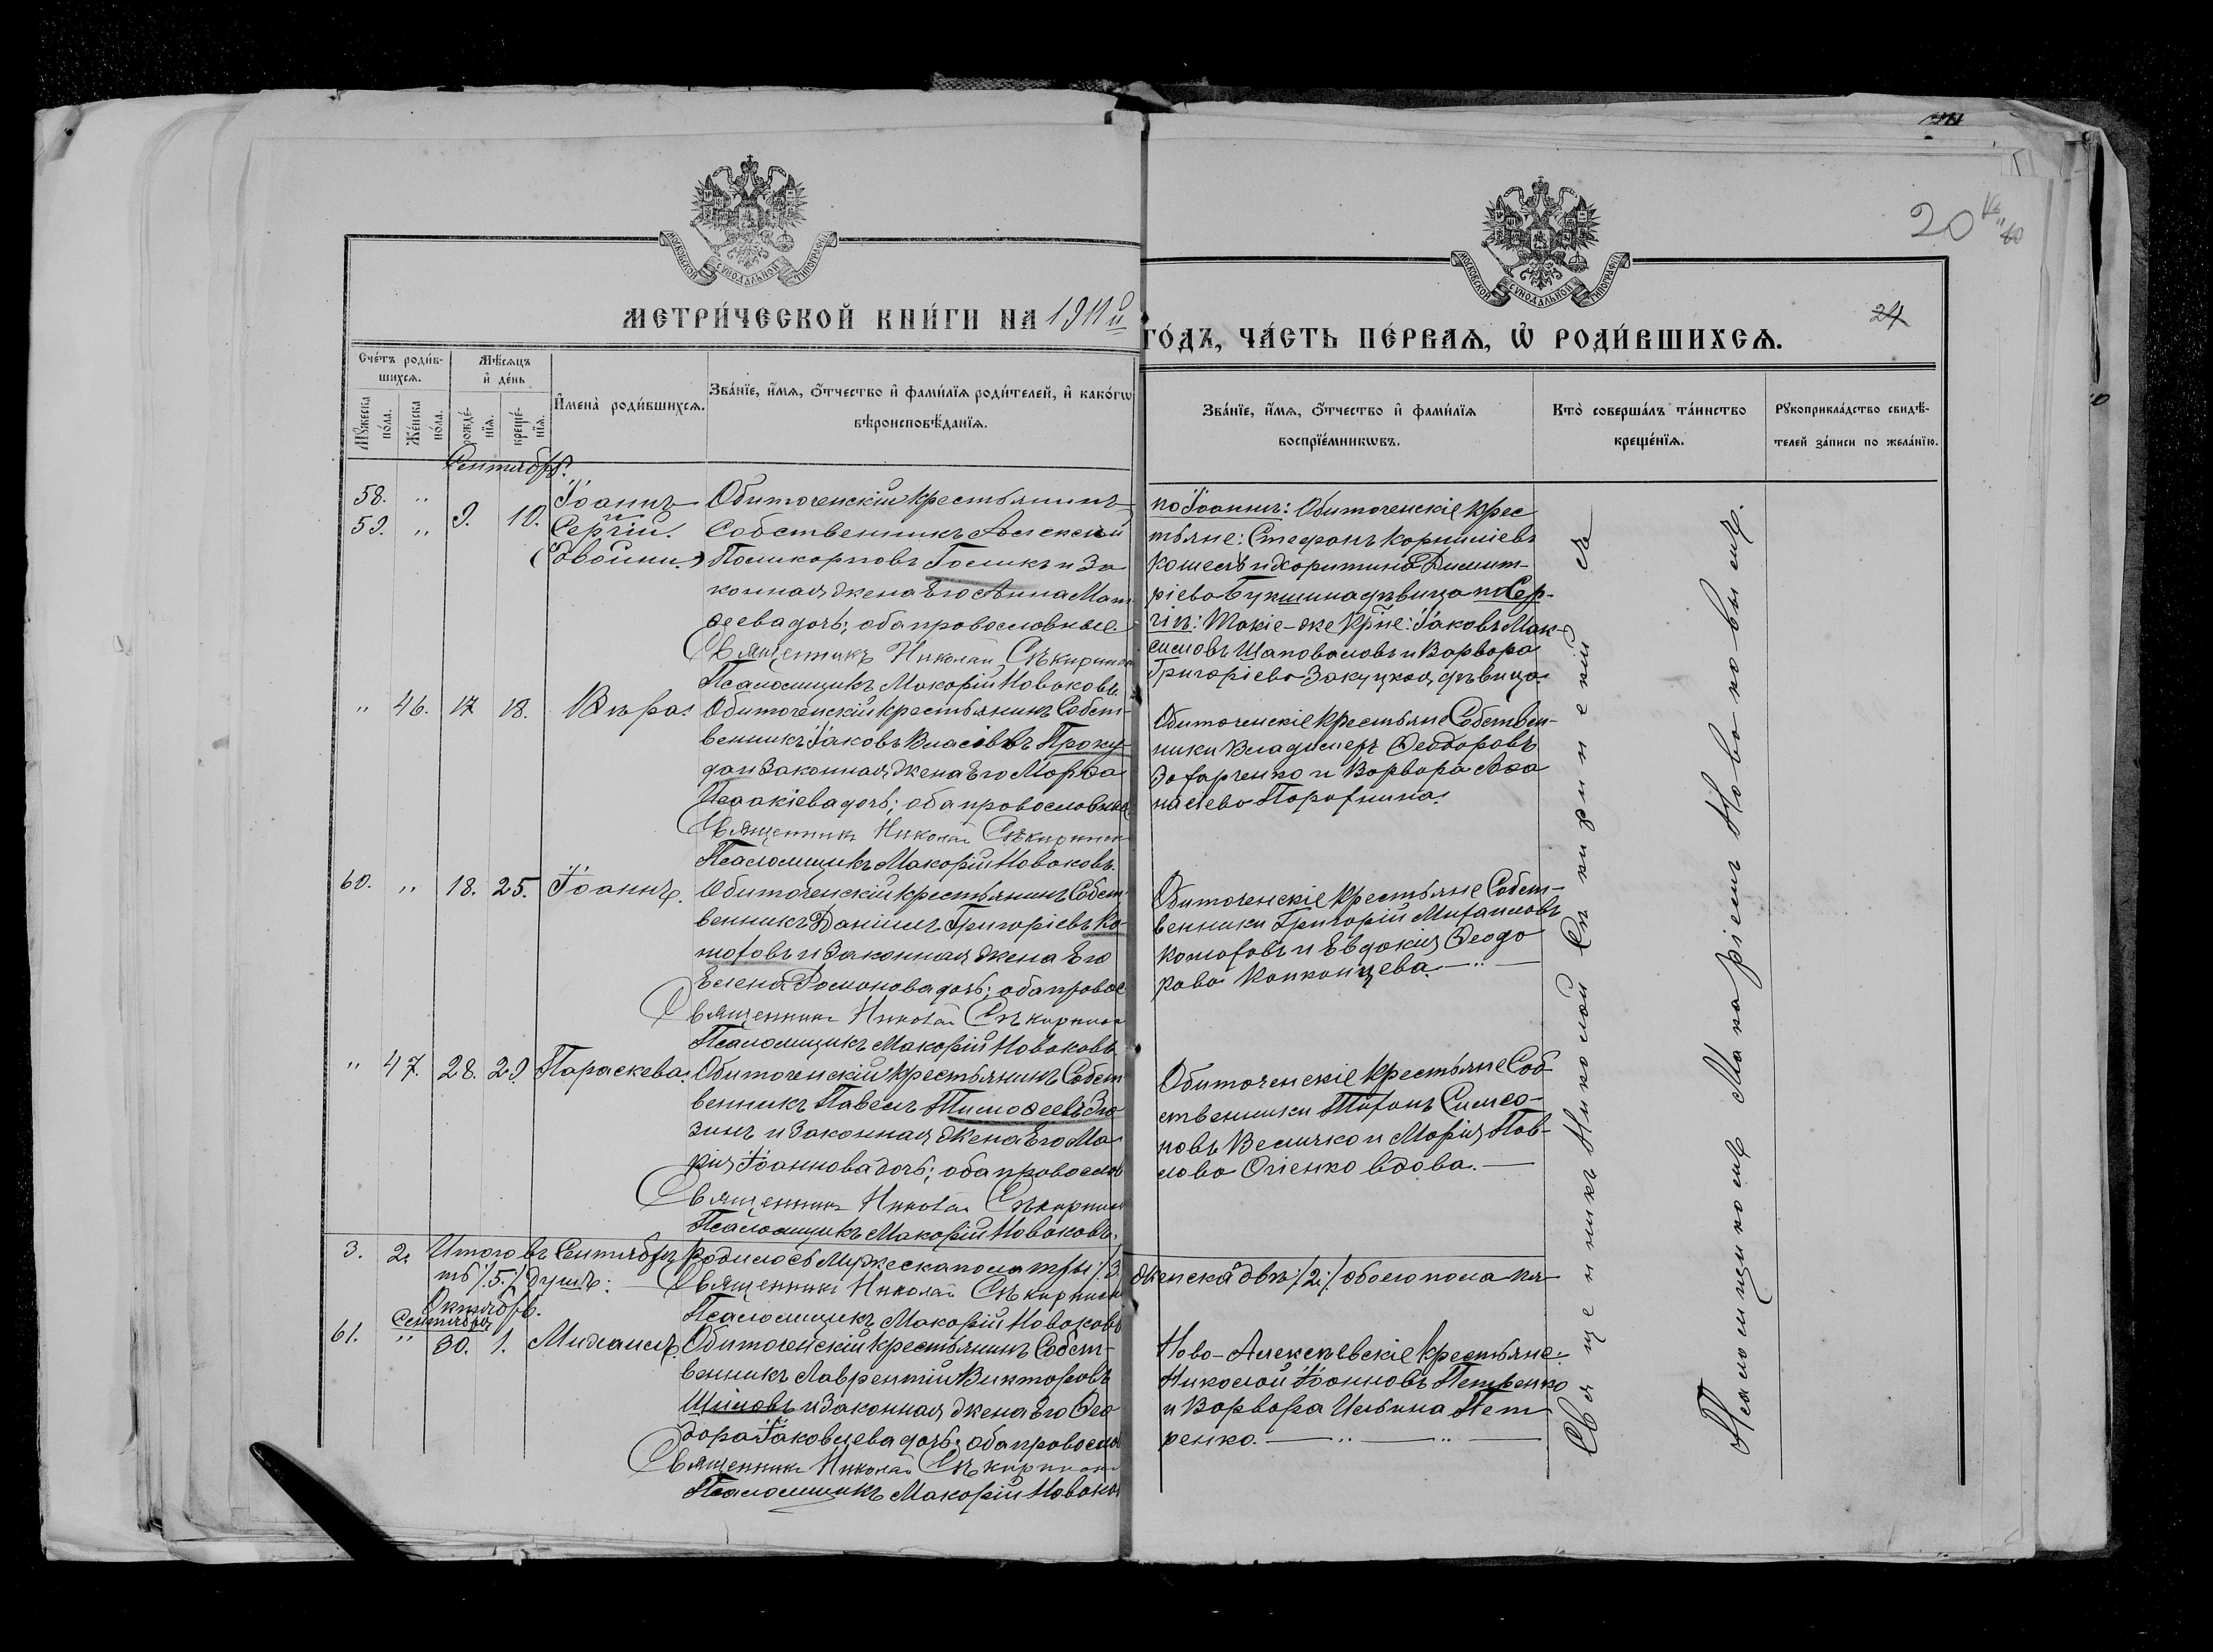 20
24
МОСКОВСКОЙ СѴНОДАЛЬНОЙ ТИПОГРАФІИ
МОСКОВСКОЙ СѴНОДАЛЬНОЙ ТИПОГРАФІИ
МЕТРИ́ЧЕСКОЙ КНИ́ГИ НА 1911й
ГО́ДЪ, ЧА́СТЬ ПЕ́РВАѦ, Ѡ҆ РОДИ́ВШИХСѦ.
Сче́тъ роди́вшихсѧ.
Мꙋ́жеска по́ла.
Же́нска по́ла.
Мѣ́сѧцъ и҆ де́нь
рожде́нїѧ.
креще́нїѧ.
И҆мена̀ роди́вшихсѧ.
Зва́нїе, и҆́мѧ, ѻ҆́тчество и҆ фами́лїѧ роди́телей, и҆ како́гѡ
вѣроисповѣ́данїѧ.
Зва́нїе, и҆́мѧ, ѻ҆́тчество и҆ фами́лїѧ
воспрїе́мникѡвъ.
Кто̀ соверша́лъ та́инство
креще́нїѧ.
Рꙋкоприкла́дство свидѣ́-
телей за́писи по жела́нїю.
Сентябрь.
58. " 9. 10. Іоаннъ
59. " Сергій.
(двойни.)
Обиточенскій крестьянинъ
Собственникъ Алексѣй
Поликарповъ Голикъ и За
конная жена Его Анна Мат
ѳеева дочь; оба православные
Священникъ Николай Сѣкиринскій
Псаломщикъ Макарій Новаковъ
по Іоаннѣ: Обиточенскіе крес
тьяне: Стефанъ Корниліевъ
Кошель и Харитина Димит-
ріева Букшина дѣвица по Сер-
гіѣ: Такіе-же Кр̃не: Іаковъ Мак-
симовъ Шаповаловъ и Варвара
Григоріева Закуцкая, дѣвица.
" 46. 17 18. Вѣра.
Обиточенскій крестьянинъ Собст-
венникъ Іаковъ Власовъ Проку-
да и Законная жена Его Марѳа
Исаакіева дочь; оба православные
Священникъ Николай Сѣкиринскій
Псаломщикъ Макарій Новаковъ.
Обиточенскіе крестьяне Собствен-
ники Владимеръ Ѳеодоровъ
Захарченко и Варвара Аѳа
насіева Парахнина.
60. " 18. 25. Іоаннъ.
Обиточенскій крестьянинъ Собст-
венникъ Даніилъ Григоріевъ Ко-
нюховъ и Законная жена Его
Елена Романова дочь; оба правосл
Священникъ Николай Сѣкиринскій
Псаломщикъ Макарій Новаковъ
Обиточенскіе крестьяне Собст-
венники Григорій Михаиловъ
Конюховъ и Евдокія Ѳеодо
рова Капканцева.
" 47. 28. 29. Параскева.
Обиточенскій крестьянинъ Собст
венникъ Павелъ Тимоѳеевъ
зинъ и Законная жена Его Ма
рія Іоаннова дочь; оба православ
Священникъ Николай Сѣкиринскій
Псаломщикъ Макарій Новаковъ.
Обиточенскіе крестьяне Соб-
ственники Тихонъ Симео-
новъ Величко и Марія Пав-
лова Огіенко вдова.
3. 2. Итого въ Сентябрѣ родилось Мужеска пола три /:3
женска двѣ /:2:/ обоего пола пя-
ть /:5:/ душъ:
Священникъ Николай Сѣкиринскій
Псаломщикъ Макарій Новаковъ
Октябрь.
Сентября
61. " 30. 1. Михаилъ.
Обиточенскій крестьянинъ Собст-
венникъ Лаврентій Викторовъ
Шиловъ и Законная жена Его Ѳео
дора Іаковлева дочь; оба православ
Священникъ Николай Сѣкиринскій
Псаломщикъ Макарій Новаков
Ново-Алексѣевскіе крестьяне:
Николай Іоанновъ Петренко
и Варвара Ильина Пет
ренко.
Священникъ Николай Сѣкиринскій съ
Псаломщикомъ Макаріемъ Новаковымъ.